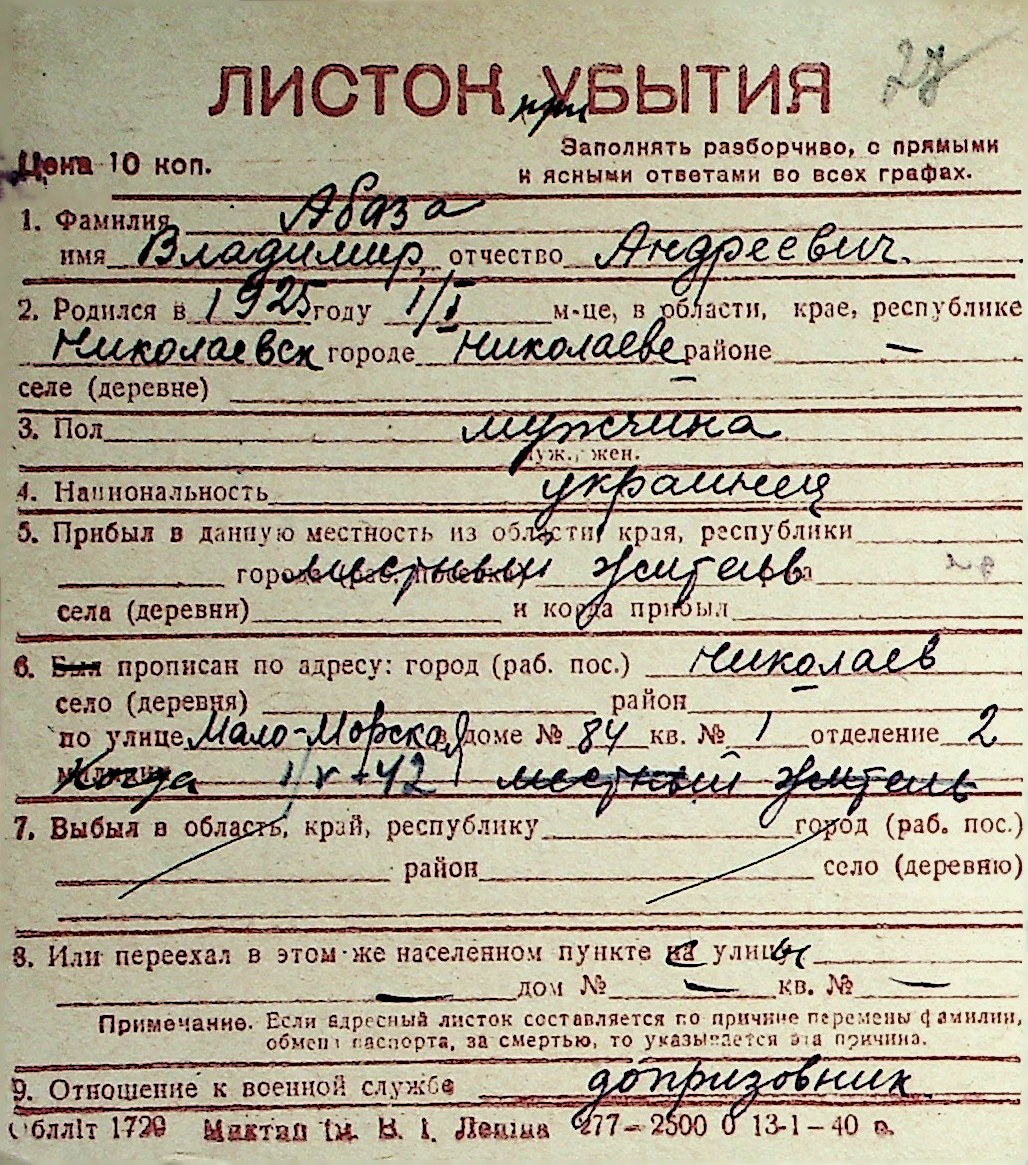 27
ЛИСТОК при УБЫТИЯ
Заполнять разборчиво, с прямыми
Цена 10 коп.
и ясными ответами во всех графах.
1. Фамилия Абаза
имя Владимир отчество Андреевич.
2. Родился в 1925 году 1/I м-це, в области, крае, республике
Николаевск городе Николаеве районе —
селе (деревне) —
3. Пол мужчина
муж., жен.
4. Национальность украинец
5. Прибыл в данную местность из области, края, республики
города местный житель
села (деревни) и когда прибыл
6. Был прописан по адресу: город (раб. пос.) Николаев
село (деревня) район
по улице Мало-Морская в доме № 84 кв. № 1 отделение 2
Когда 42 местный житель
7. Выбыл в область, край, республику город (раб. пос.)
район село (деревню)
8. Или переехал в этом же населенном пункте с улицы
— дом № — кв. № —
Примечание. Если адресный листок составляется по причине перемены фамилии,
обмена паспорта, за смертью, то указывается эта причина.
9. Отношение к военной службе допризовник
Облліт 1720 ім. В. І. Леніна 277—2500 0 13-1-40 р.